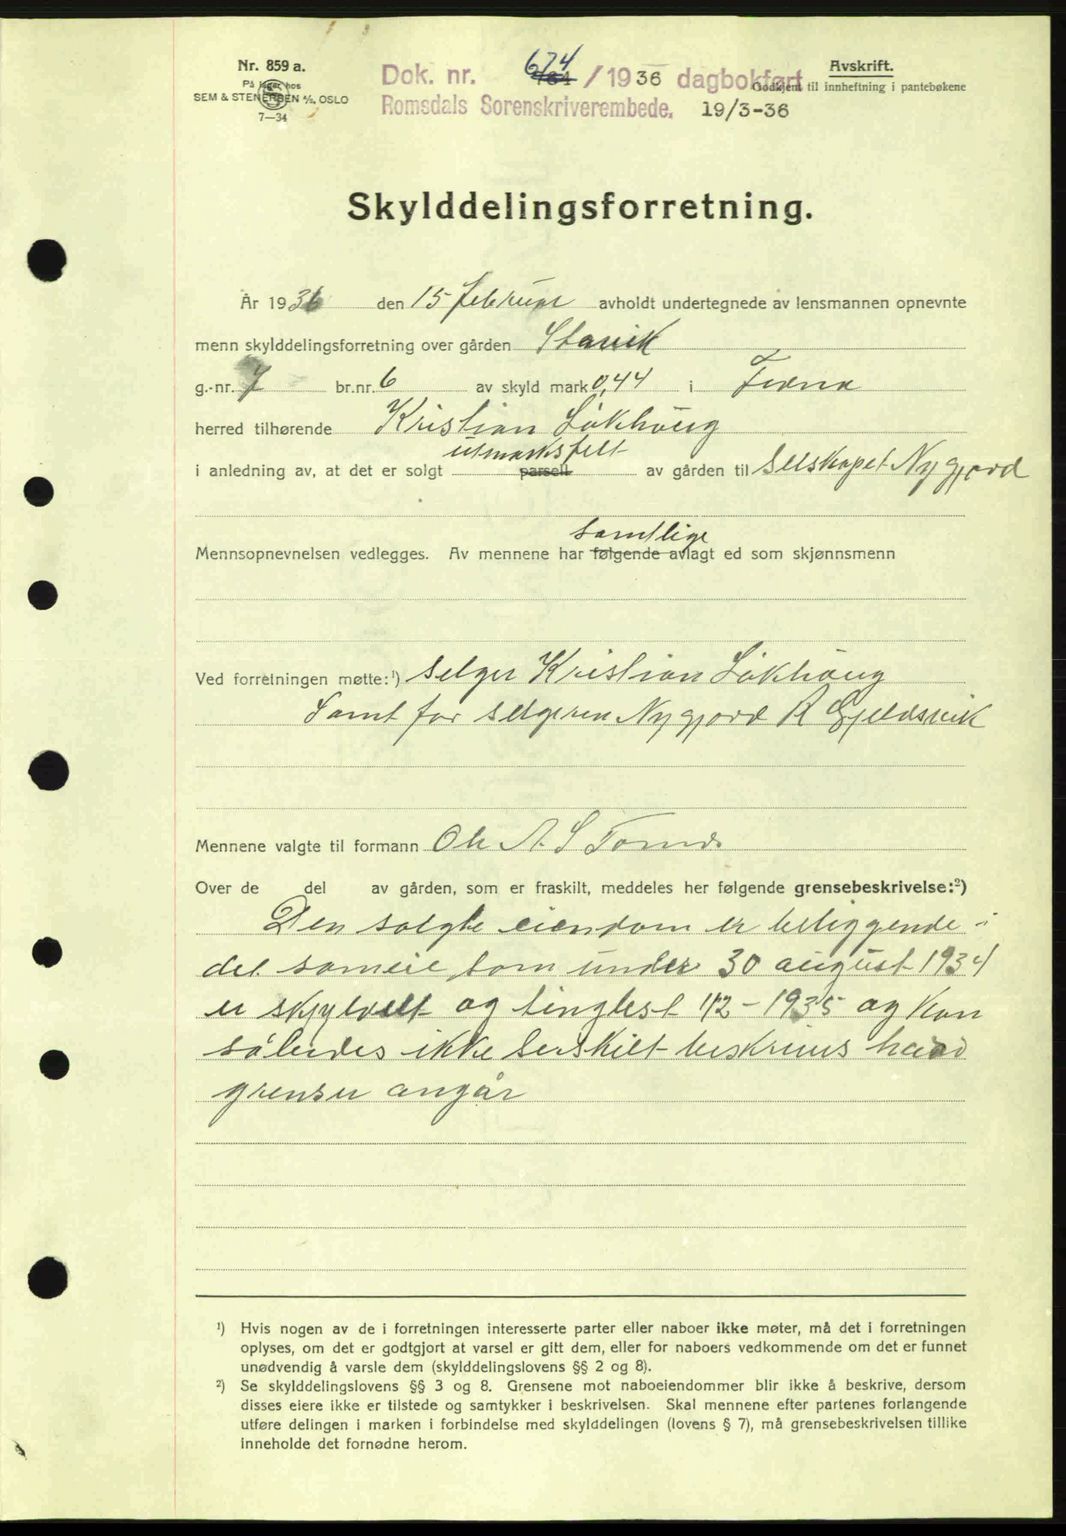 Nr. 859 a.
På lager hos
SEM & STENERSEN A/S, OSLO
7—34
Dok. nr. 674 / 1936 dagbokført
Romsdals Sorenskriverembede. 19/3-36
Avskrift.
Godkjent til innheftning i pantebøkene
Skylddelingsforretning.
År 1936 den 15 februar avholdt undertegnede av lensmannen opnevnte
menn skylddelingsforretning over gården Stavik
g.-nr. 7 br.nr. 6 av skyld mark 0,44 i Fræna
herred tilhørende Kristian Løkhaug
utmarksfelt
i anledning av, at det er solgt parsell av gården til Selskapet Nygjord
samtlige
Mennsopnevnelsen vedlegges. Av mennene har følgende avlagt ed som skjønnsmenn
Ved forretningen møtte:¹) Selger Kristian Løkhaug
Samt for selgeren Nygjord R Gjeldsvik
Mennene valgte til formann Ole A. S
Over de del av gården, som er fraskilt, meddeles her følgende grensebeskrivelse:²)
Den solgte eiendom er beliggende i
det sameie som under 30 august 1934
er skyldelt og tinglest 1/2-1935 og kan
således ikke serskilt beskrives hvad
grenser angår
¹) Hvis nogen av de i forretningen interesserte parter eller naboer ikke møter, må det i forretningen
oplyses, om det er godtgjort at varsel er gitt dem, eller for naboers vedkommende om det er funnet
unødvendig å varsle dem (skylddelingslovens §§ 2 og 8).
²) Se skylddelingslovens §§ 3 og 8. Grensene mot naboeiendommer blir ikke å beskrive, dersom
disses eiere ikke er tilstede og samtykker i beskrivelsen. Skal mennene efter partenes forlangende
utføre delingen i marken i forbindelse med skylddelingen (lovens § 7), må grensebeskrivelsen tillike
inneholde det fornødne herom.